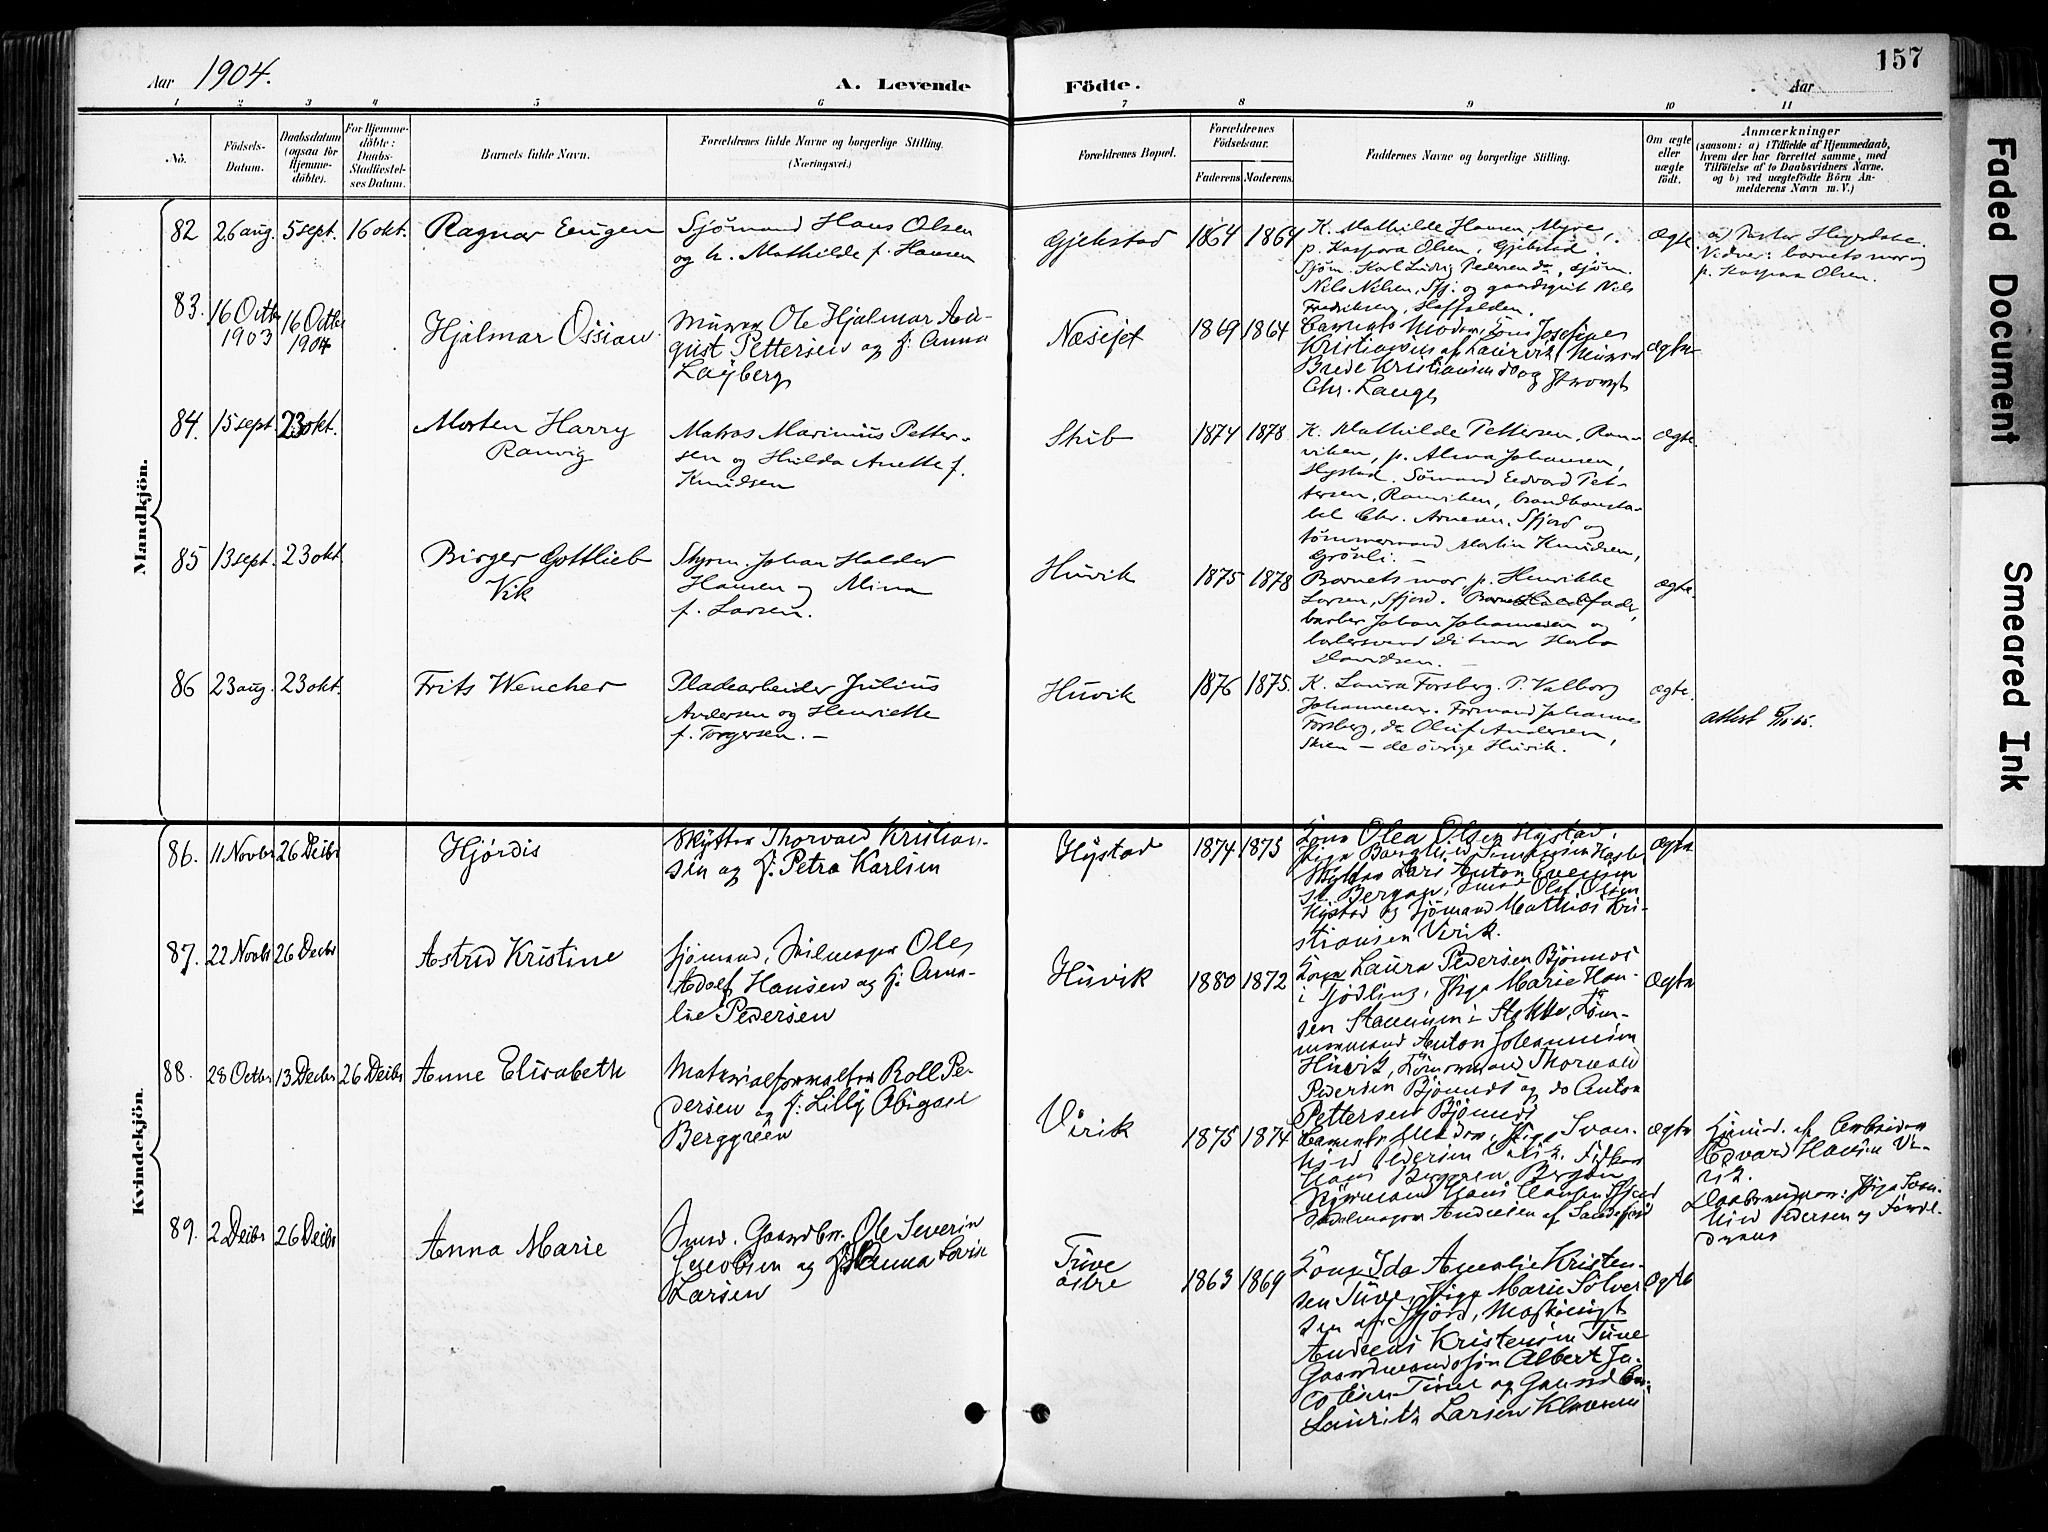 157
Aar 1904.
A. Levende Födte.
Aar
1 2 3 4 5 6 7 8 9 10 11
No.
Födsels-Datum.
Daabsdatum (ogsaa for Hjemme-döbte).
For Hjemme-döbte: Daabs-Stadfæstel-ses Datum.
Barnets fulde Navn.
Forældrenes fulde Navne og borgerlige Stilling.
(Næringsvei.)
Forældrenes Bopæl.
Forældrenes Födselsaar.
Faderens. Moderens.
Faddernes Navne og borgerlige Stilling.
Om ægte eller uægte födt.
Anmærkninger
(saasom: a) i Tilfælde af Hjemmedaab,
hvem der har forrettet samme, med
Tilföielse af to Daabsvidners Navne,
og b) ved uægtefödte Börn An-
melderens Navn m. V.)
Mandkjön.
82 26 aug. 5 sept. 16 okt. Ragnar Eugen
Sjømand Hans Olsen
og h. Mathilde f. Hansen
Gjekstad 1864 1864
K. Mathilde Hansen, Myre,
p. Kaspara Olsen, Gjekstad,
Sjøm. Karl Ludvig Pedersen do, sjøm.
Nils Nilsen, Sfj. og gaardsgut Nils
Fredriksen, Haffalden.
Ægte
a) Pastor
Vidner: barnets mor og
p. Kaspara Olsen.
83. 16 Octbr 1903 16 Octbr 1904 Hjalmar Ossian
Murer Ole Hjalmar Au-
gust Pettersen og f: Anna
Løyberg
Næsejet 1869 1864
Barnets Moder, Kone Josefine
Kristiansen af Laurvik, Murer
Brede Kristiansen do og
Chr. Lauge
Ægte
84. 15 sept. 23 okt. Morten Harry
Ranvig
Matros Marinius Petter-
sen og Hulda Anette f.
Knudsen
Stub 1874 1878
K. Mathilde Pettersen, Ran-
viken, p. Alma Johansen,
Hystad. Sømand Edvard Pet-
tersen, Ranviken, brandkonsta-
bel Chr. Arnesen, Sfjord og
tømmermand Martin Knudsen,
Grönli. —
ægte.
85 13 sept. 23 okt. Birger Gottlieb
Vik
Styrm. Johan Haldor
Hansen og Mina
f. Larsen.
Huvik 1875 1878
Barnets mor, p. Henrikke
Larsen, Sfjord. Barnets fader,
barber Johan Johannesen og
Ditmar
Davidsen. —
ægte.
86 23 aug. 23 okt. Frits Wencher
Pladearbeider Julius
Andersen og Henriette
f. Torgersen. —
Huvik 1876 1875.
K. Laura Forsberg. P. Valborg
Johannesen. Formand Johannes
Forsberg, do Oluf Andersen,
Skien — de övrige Huvik.
ægte.
attest
Kvindekjön.
86. 11 Novbr 26 Decbr Hjördis
Skytter Thorvald Kristian-
sen og f: Petra Karlsen
Hystad 1874 1875
Kone Olea Olsen Hystad,
Pige Borghild
Skytter Lars Anton Evensen
Bergan, Smed Olaf Olsen
Hystad og Sjömand Mathias Kri-
stiansen Virik.
Ægte
87. 22 Novbr 26 Decbr Astrid Kristine
Sjömand, Seilmager Ole
Adolf Hansen og f: Ama-
lie Pedersen
Huvik 1880 1872
Kone Laura Pedersen Björnnes
i Tjödling, Pige Marie Han-
sen i Stokke, Töm-
mermand Anton Johannesen
Huvik, Tömmermand Thorvald
Pedersen Björnnes og do Anton
Pettersen Björnnes
Ægte
88. 28 Octbr 13 Decbr 26 Decbr Anne Elisabeth
Materialforvalter Rolf Pe-
dersen og f: Lilly Abigael
Berggreen
Virik 1875 1874
Barnets Moder, Pige Svan-
hild Pedersen Virik,
Hans Berggreen Bergan
Styrmand Hans Clausen Sfjord
Andresen af Sandefjord
Ægte
Hjemd. af Arbeider
Edvard Hansen Vi-
rik.
Daabsvidner: Pige Svan-
hild Pedersen og Foræl-
drene
89. 2 Decbr 26 Decbr Anna Marie
Smed. Gaardbr. Ole Severin
Jacobsen og f: Hanna Lovise
Larsen
Tuve
östre 1863 1869
Kone Ida Amalie Kristen-
sen Tuve, Pige Marie Sölver-
sen af Sfjord, Maskinist
Andreas Kristensen Tuve
Gaardmandssön Albert Ja-
cobsen Tuve og Gaardbr.
Lauritz Larsen Klavenes
Ægte
Faded Document
Smeared Ink